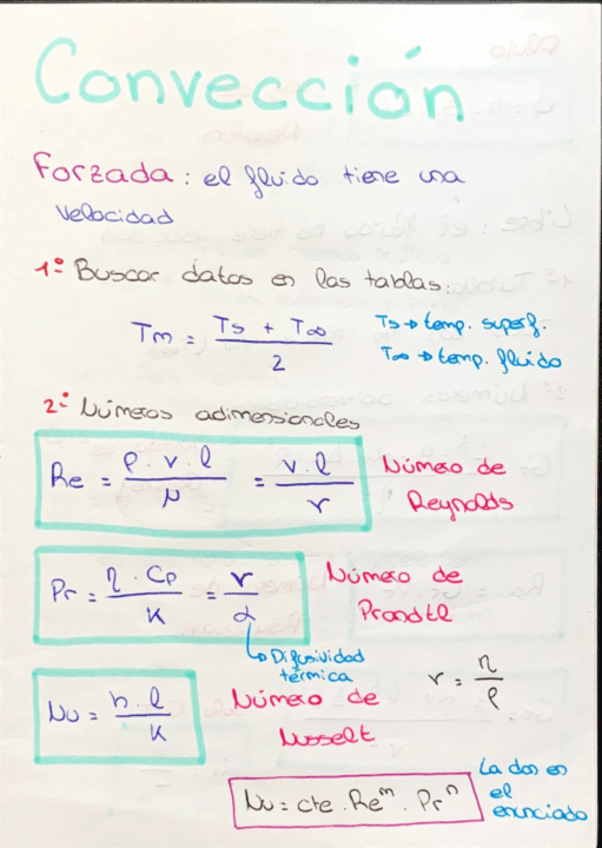 Convección
Forzada: el fluido tiene una
velocidad
1º Buscar datos en las tablas:
Tm = (Ts + T∞) / 2
Ts → temp. superf.
T∞ → temp. fluido
2º Números adimensionales
Re = (ρ · v · l) / μ = (v · l) / ν
Número de
Reynolds
Pr = (η · Cp) / K = ν / α
Número de
Prandtl
↳ Difusividad
térmica
ν = η / ρ
Nu = (h · l) / K
Número de
Nusselt
Nu = cte · Re^m · Pr^n
La dan en
el
enunciado